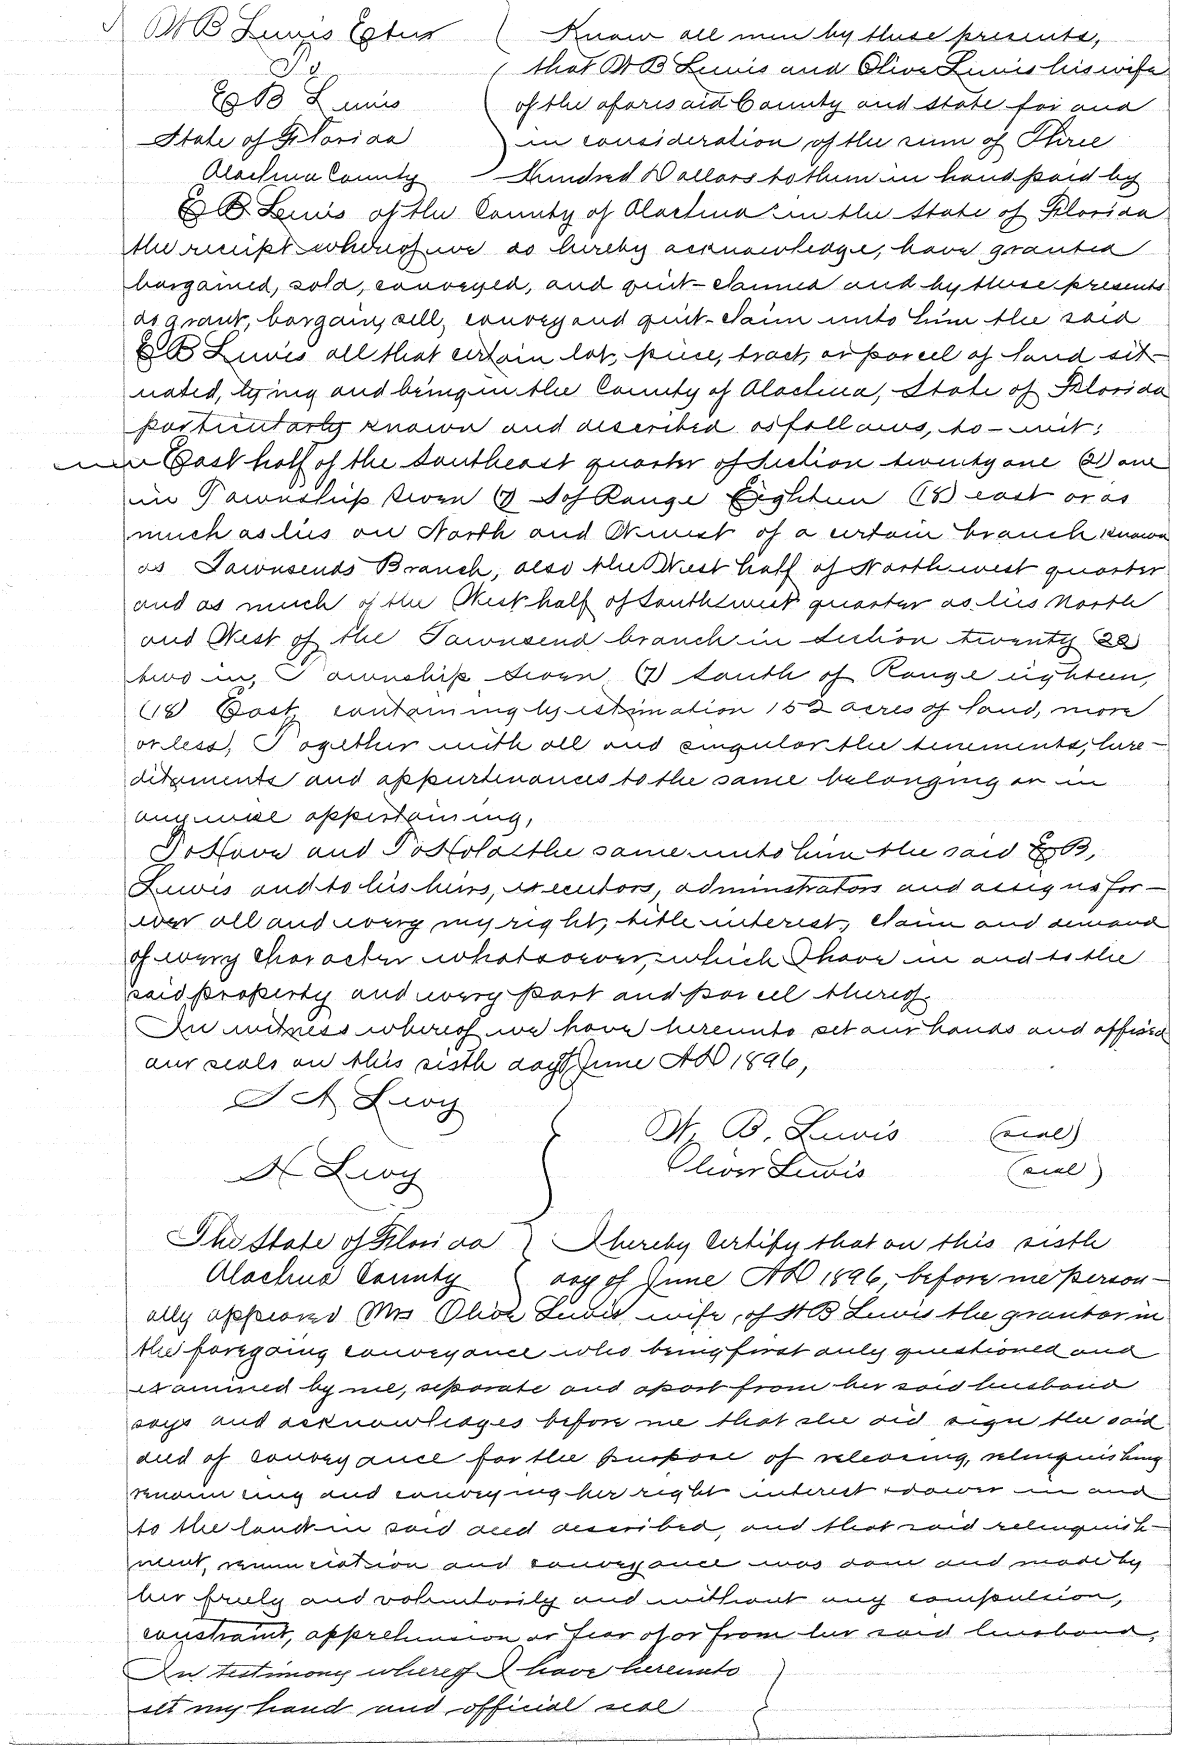 W B Lewis Etux
To
E B Lewis
State of Florida
Alachua County
Know all men by these presents,
that W B Lewis and Olive Lewis his wife
of the aforesaid County and state for and
in consideration of the sum of Three
Hundred Dollars to them in hand paid by
E B Lewis of the County of Alachua in the State of Florida
the receipt whereof we do hereby acknowledge, have granted
bargained, sold, conveyed, and quit-claimed and by these presents
do grant, bargain, sell, convey and quit-claim unto him the said
E B Lewis all that certain lot, piece, tract, or parcel of land sit-
uated, lying and being in the County of Alachua, State of Florida
particularly known and described as follows, to-wit:
East half of the Southeast quarter of Section twenty one (21) one
in Township Seven (7) S of Range Eighteen (18) east or as
much as lies on North and N west of a certain branch known
as Townsends Branch, also the West half of Northwest quarter
and as much of the West half of Southwest quarter as lies North
and West of the Townsend branch in Section twenty (22)
two in, Township Seven (7) South of Range eighteen,
(18 East, containing by estimation 152 acres of land, more
or less, Together with all and singular the tenements, here-
ditaments and appurtenances to the same belonging or in
anywise appertaining,
To Have and To Hold the same unto him the said E B,
Lewis and to his heirs, executors, adminstrators and assigns for-
ever all and every my right, title interest, claim and demand
of every character whatsoever, which I have in and to the
said property and every part and parcel thereof.
In witness whereof we have hereunto set our hands and affixed
our seals on this sisth day of June AD 1896,
J A Levy
H Levy
W. B. Lewis (seal)
Oliver Lewis (seal)
The State of Florida
Alachua County
I hereby Certify that on this sisth
day of June AD 1896, before me person-
ally appeared Mrs Olive Lewis wife of W B Lewis the grantor in
the foregoing conveyance who being first duly questioned and
examined by me, separate and apart from her said husband
says and acknowledges before me that she did sign the said
deed of conveyance for the purpose of releasing, relinquishing
renouncing and conveying her right interest dower in and
to the land in said deed described, and that said relinquish-
ment, renunciation and conveyance was done and made by
her freely and voluntarily and without any compulsion,
constraint, apprehension or fear of or from her said husband.
In testimony whereof I have hereunto
set my hand and official seal